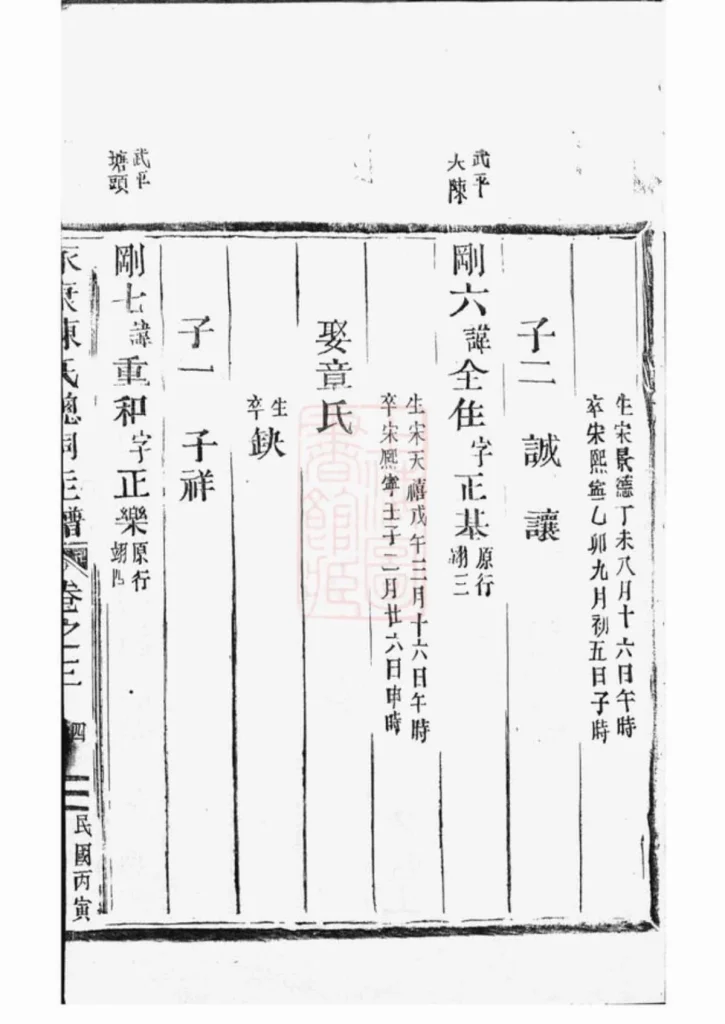 生宋景德丁未八月十六日午時
卒宋熙寧乙卯九月初五日子時
子二 誠 讓
武平
大陳
剛六諱全住字正基原行翊三
生宋天禧戊午三月十六日午時
卒宋熙寧壬子二月廿六日申時
娶章氏
生
卒缺
子一 子祥
武平
塘頭
剛七諱重和字正樂原行翊四
陳氏總祠主譜 卷之三 四 民國丙寅